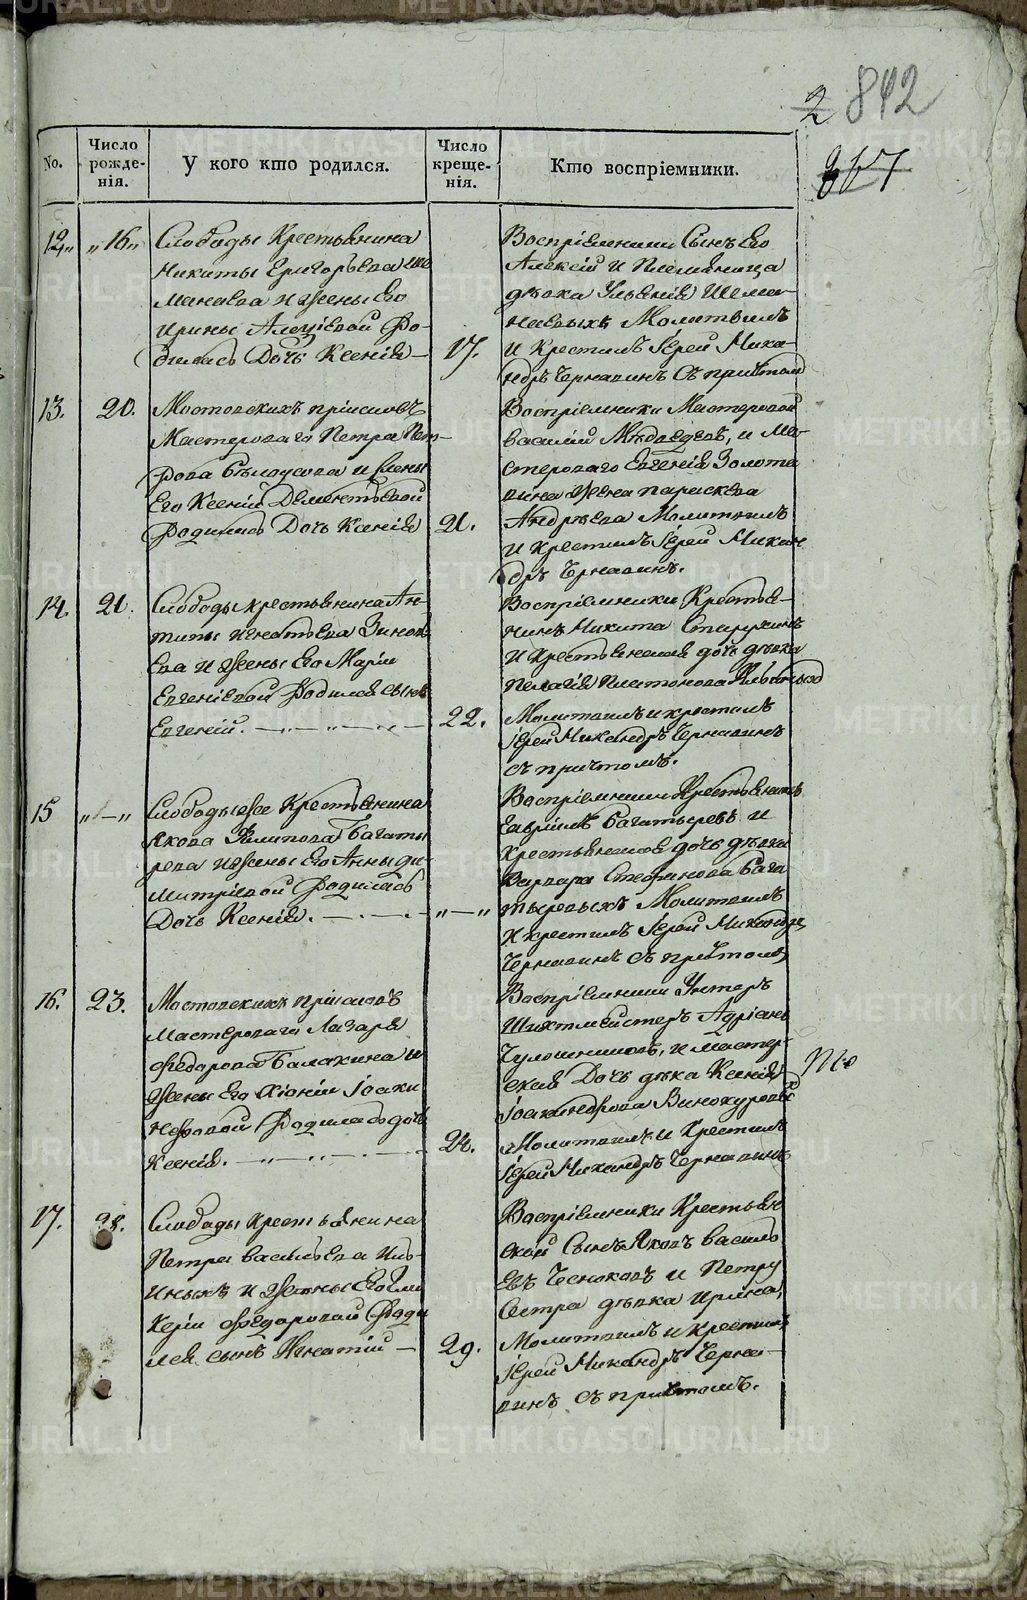 2 842
367
No.
Число рожде-нія.
У кого кто родился.
Число креще-нія.
Кто воспріемники.
12,, ,,16,,
Слободы Крестьянина
Никиты Григорьева Ше
манаева и жены Его
Ирины Алексіевой Ро-
дилась Дочь Ксенія —
17.
Воспріемники Сынъ Его
Алексій и Племянница
дѣвка Ульянія Шема-
наевыхъ Молитвилъ
и Крестилъ Іерей Ника-
ндръ Чернавинъ Съ причтомъ
13. 20.
Мостовскихъ пріисковъ
Мастероваго Петра Пет-
рова Бѣлоусова и жены
Его Ксеніи Дементьевой
Родилась Дочь Ксенія
21.
Воспріемники Мастеровой
Василій Медведевъ, и Ма-
стероваго Евгенія Золота
вина жена Параскева
Андрѣева Молитвилъ
и крестилъ Іерей Никан
дръ Чернавинъ.
14. 21.
Слободы крестьянина Ан-
типы Игнатьева Зиновь
ева и жены Его Маріи
Евгеніевой Родился сынъ
Евгеній.
22.
Воспріемники Крестья-
нинъ Никита Старухинъ
И Крестьянская дочь дѣвка
Пелагія Платонова
Молитвилъ и крестилъ
Іерей Никандръ Чернавинъ
съ причтомъ.
15 ,,—,,
Слободы же Крестьянина
Якова Филипова Багаты
рева и жены Его Анны Ди
митріевой Родилась
Дочь Ксенія.
,,—,,
Воспріемники Крестьянинъ
Гавріилъ Багатыревъ и
крестьянская дочь дѣвка
Варвара Стефанова Бага
тыревыхъ Молитвилъ
и крестилъ Іерей Никандръ
Чернавинъ съ причтомъ
16. 23.
Мостовскихъ пріисковъ
Мастероваго Лазаря
Федорова Балакина и
жены Его Хіоніи Іоаки
нфовой Родилась дочь
Ксенія.
24.
Воспріемники Унтеръ
Шихтмейстеръ Адріанъ
и мастер-
ская Дочь дѣвка Ксенія
Іоакинфова Винокуровыхъ
Молитвилъ и Крестилъ
Іерей Никандръ Чернавинъ
17. 28.
Слободы крестьянина
Петра Васильева Иль-
иныхъ и жены Его Гли
керіи Федоровой Роди
лся сынъ Игнатій —
29.
Воспріемники Крестьян
ской Сынъ Яковъ Василь
евъ Чесноковъ и Петру
Сестра дѣвка Ирина,
Молитвилъ и крестилъ
Іерей Никандръ Черна-
винъ съ причтомъ.
METRIKI.GASO-URAL.RU